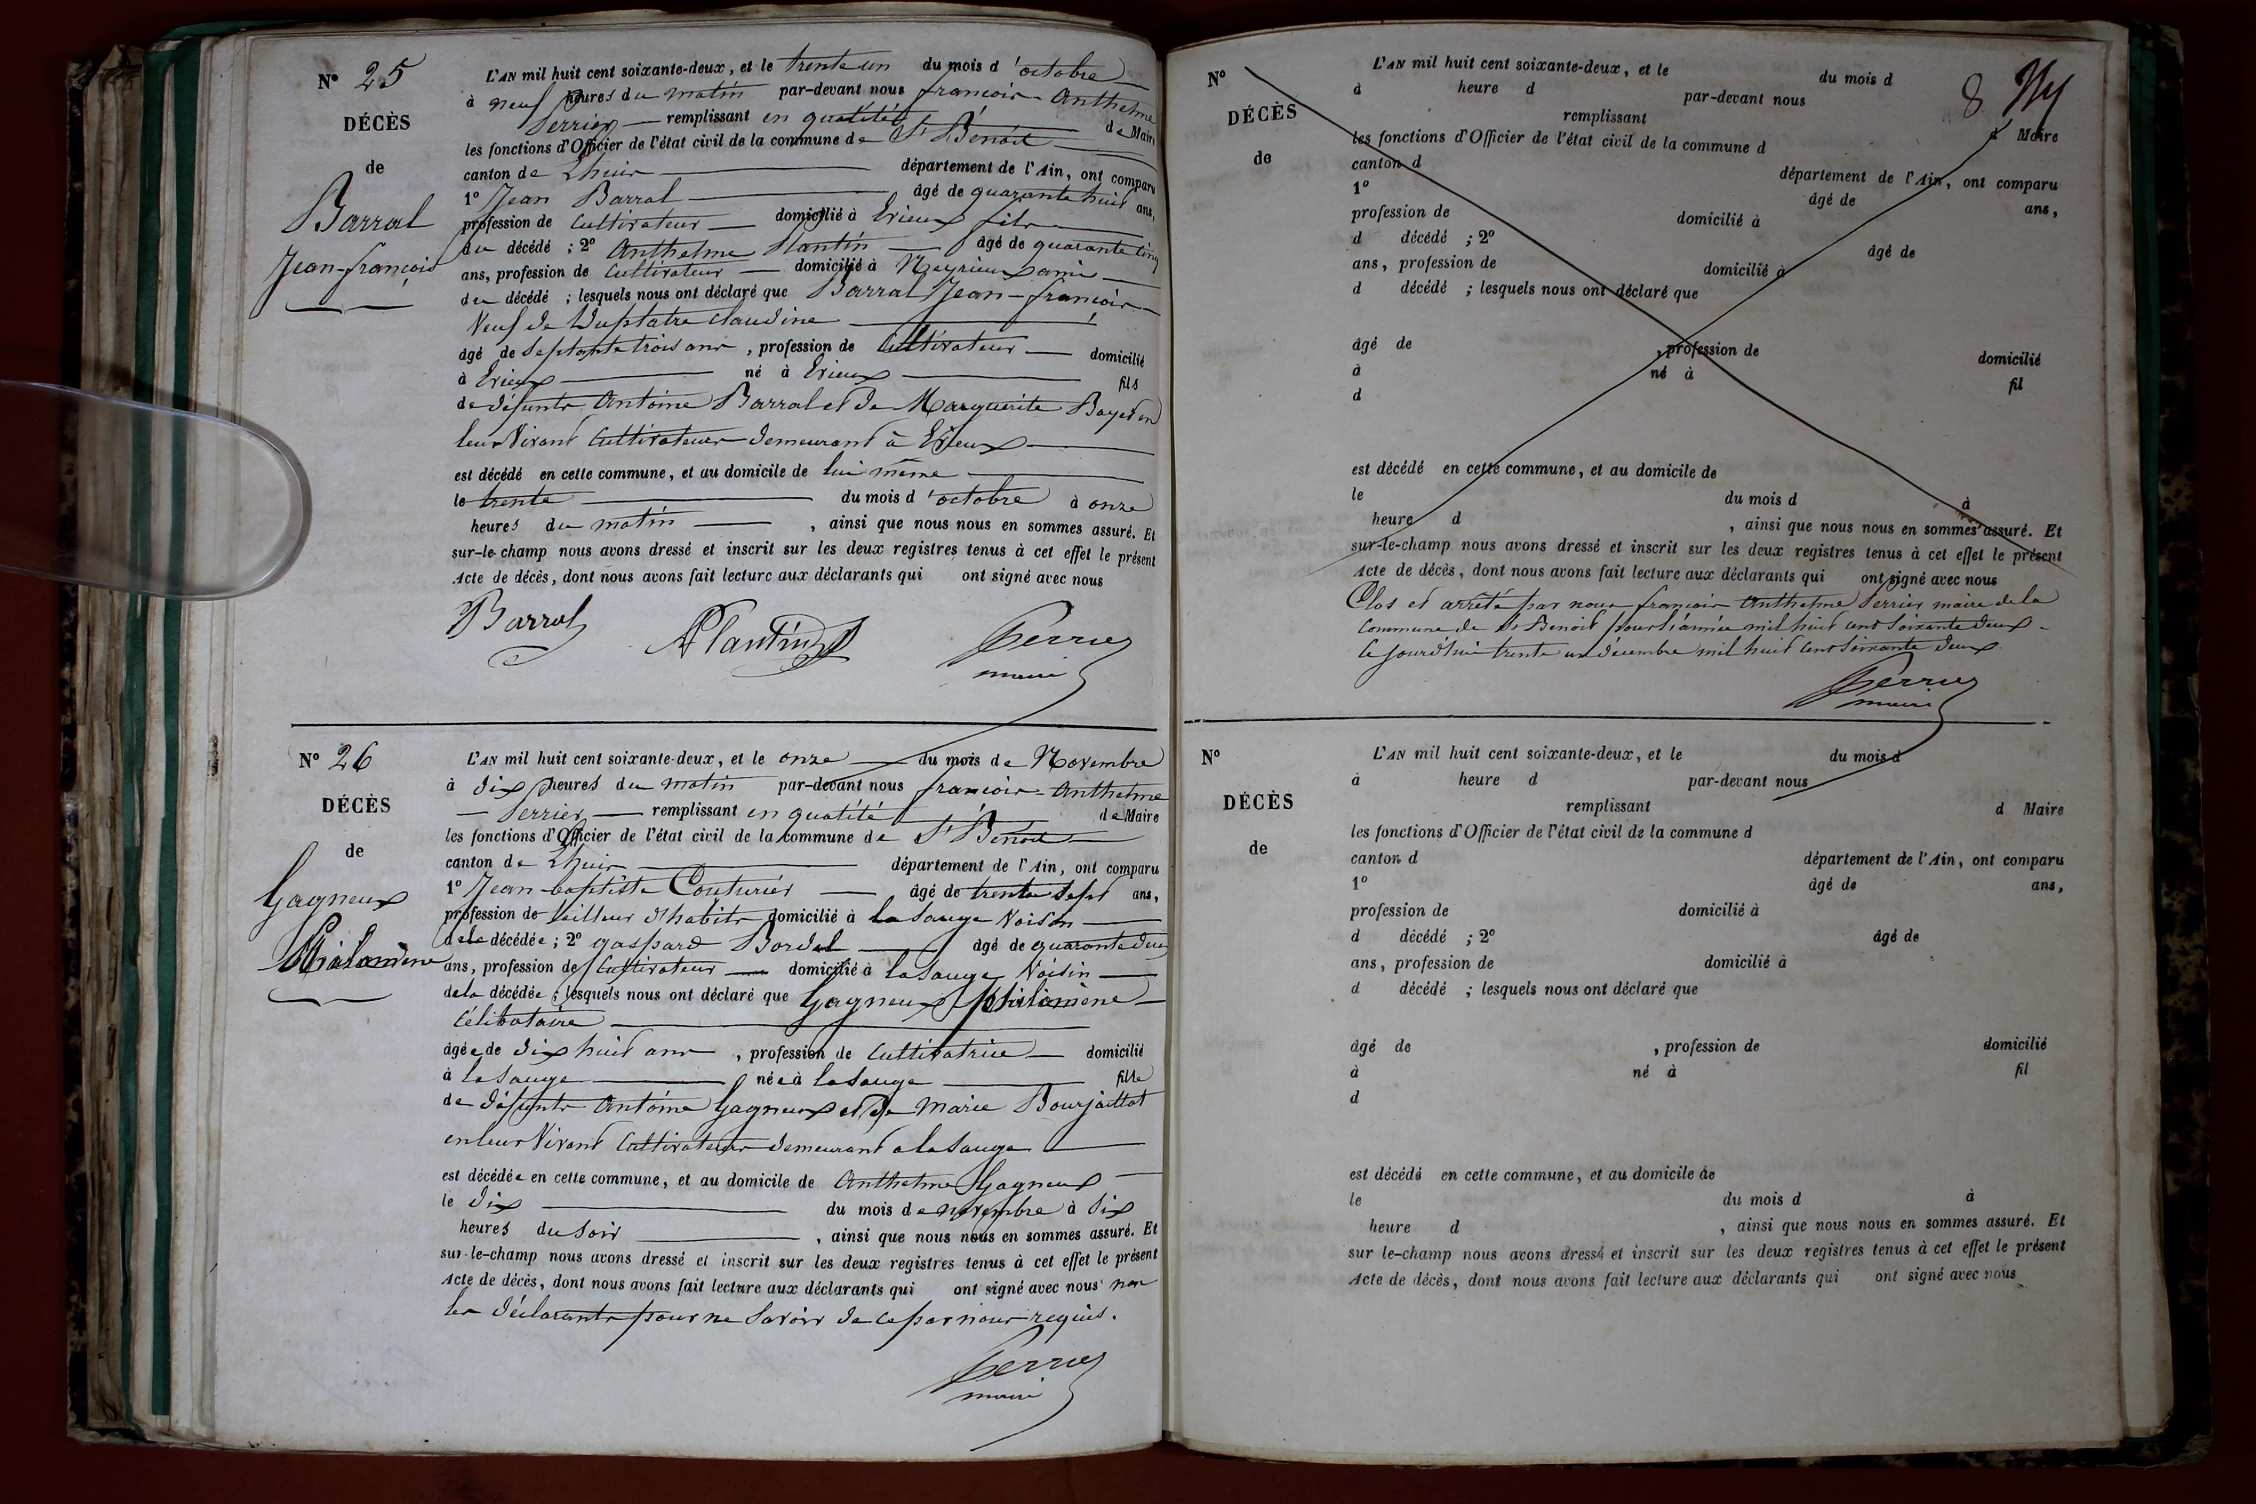 N° 25
DÉCÈS
de
Barral
Jean-françois
L'AN mil huit cent soixante-deux, et le trente un du mois d'octobre
à neuf heures du matin par-devant nous françois Anthelme
Perrier remplissant en qualité de Maire
les fonctions d'Officier de l'état civil de la commune de St Benoit
canton de Lhuis département de l'Ain, ont comparu
1° Jean Barral âgé de quarante huit ans,
profession de cultivateur domicilié à Erieux fils
du décédé ; 2° Anthelme Plantin âgé de quarante cinq
ans, profession de cultivateur domicilié à Neyrieux ami
du décédé ; lesquels nous ont déclaré que Barral Jean-françois
Veuf de Duplatre Claudine
âgé de septante trois ans, profession de cultivateur domicilié
à Erieux né à Erieux fils
de défunts Antoine Barral et de Marguerite Boyet en
leur Vivant Cultivateurs demeurant à Erieux
est décédé en cette commune, et au domicile de lui même
le trente du mois d'octobre à onze
heures du matin, ainsi que nous nous en sommes assuré. Et
sur-le-champ nous avons dressé et inscrit sur les deux registres tenus à cet effet le présent
Acte de décès, dont nous avons fait lecture aux déclarants qui ont signé avec nous
Barral APlantin Perrier
maire
N° 26
DÉCÈS
de
Gagneux
Philomène
L'AN mil huit cent soixante-deux, et le onze du mois de Novembre
à dix heures du matin par-devant nous françois Anthelme
Perrier remplissant en qualité de Maire
les fonctions d'Officier de l'état civil de la commune de St Benoit
canton de Lhuis département de l'Ain, ont comparu
1° Jean-baptiste Couturier âgé de trente sept ans,
profession de tailleur d'habits domicilié à la Sauge Voisin
de la décédée ; 2° gaspard Bordel âgé de quarante deux
ans, profession de Cultivateur domicilié à la Sauge Voisin
de la décédée ; lesquels nous ont déclaré que Gagneux Philomène
Célibataire
âgée de dix huit ans, profession de Cultivatrice domicilié
à la Sauge née à la Sauge fille
de défunts Antoine Gagneux et de Marie Bourjaillat
en leur Vivant Cultivateurs demeurant a la Sauge
est décédée en cette commune, et au domicile de Anthelme Gagneux
le dix du mois de novembre à dix
heures du soir, ainsi que nous nous en sommes assuré. Et
sur-le-champ nous avons dressé et inscrit sur les deux registres tenus à cet effet le présent
Acte de décès, dont nous avons fait lecture aux déclarants qui ont signé avec nous non
les déclarants pour ne Savoir de ce par nous requis.
Perrier
maire
8
N°
DÉCÈS
de
L'AN mil huit cent soixante-deux, et le du mois d
à heure d par-devant nous
remplissant d Maire
les fonctions d'Officier de l'état civil de la commune d
canton d département de l'Ain, ont comparu
1° âgé de ans,
profession de domicilié à
d décédé ; 2° âgé de
ans, profession de domicilié à
d décédé ; lesquels nous ont déclaré que
âgé de , profession de domicilié
à né à fil
d
est décédé en cette commune, et au domicile de
le du mois d à
heure d , ainsi que nous nous en sommes assuré. Et
sur-le-champ nous avons dressé et inscrit sur les deux registres tenus à cet effet le présent
Acte de décès, dont nous avons fait lecture aux déclarants qui ont signé avec nous
Clos et arrêté par nous françois Anthelme Perrier maire de la
Commune de St Benoit pour l'année mil huit cent soixante deux
ce jourd'hui trente un décembre mil huit cent soixante deux
Perrier
maire
N°
DÉCÈS
de
L'AN mil huit cent soixante-deux, et le du mois d
à heure d par-devant nous
remplissant d Maire
les fonctions d'Officier de l'état civil de la commune d
canton d département de l'Ain, ont comparu
1° âgé de ans,
profession de domicilié à
d décédé ; 2° âgé de
ans, profession de domicilié à
d décédé ; lesquels nous ont déclaré que
âgé de , profession de domicilié
à né à fil
d
est décédé en cette commune, et au domicile de
le du mois d à
heure d , ainsi que nous nous en sommes assuré. Et
sur le-champ nous avons dressé et inscrit sur les deux registres tenus à cet effet le présent
Acte de décès, dont nous avons fait lecture aux déclarants qui ont signé avec nous